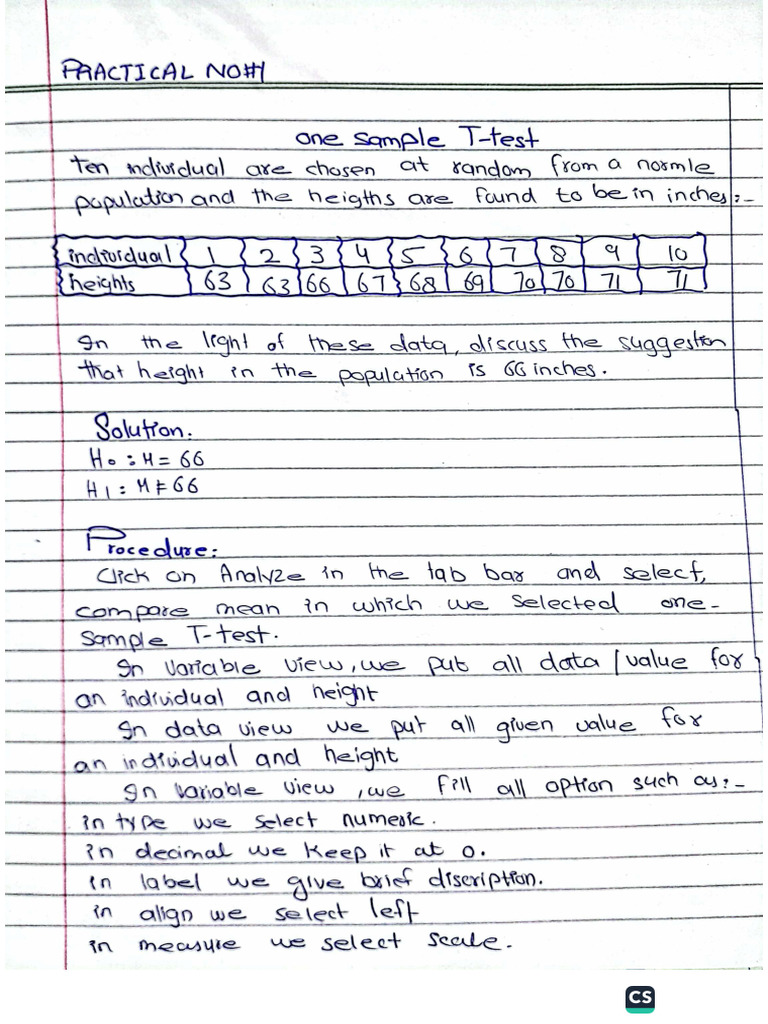 PRACTICAL NO#1
One Sample T-test
Ten individual are chosen at random from a normle
population and the heigths are found to be in inches:-
individual 1 2 3 4 5 6 7 8 9 10
heights 63 63 66 67 68 69 70 70 71 71
In the light of these data, discuss the suggestion
that height in the population is 66 inches.
Solution:
H0 : M = 66
H1 : M ≠ 66
Procedure:
Click on Analyze in the tab bar and select,
compare mean in which we selected one-
sample T-test.
In variable view, we put all data / value for
an individual and height
In data view we put all given value for
an individual and height
In variable view, we fill all option such as:-
in type we select numeric.
in decimal we keep it at 0.
in label we give brief discription.
in align we select left
in measure we select scale.
CS